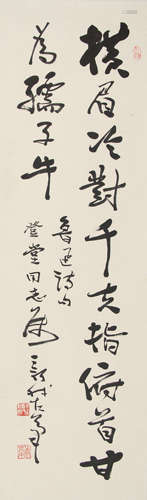 横眉冷對千夫指俯首甘
為孺子牛
魯迅詩句
登堂同志屬